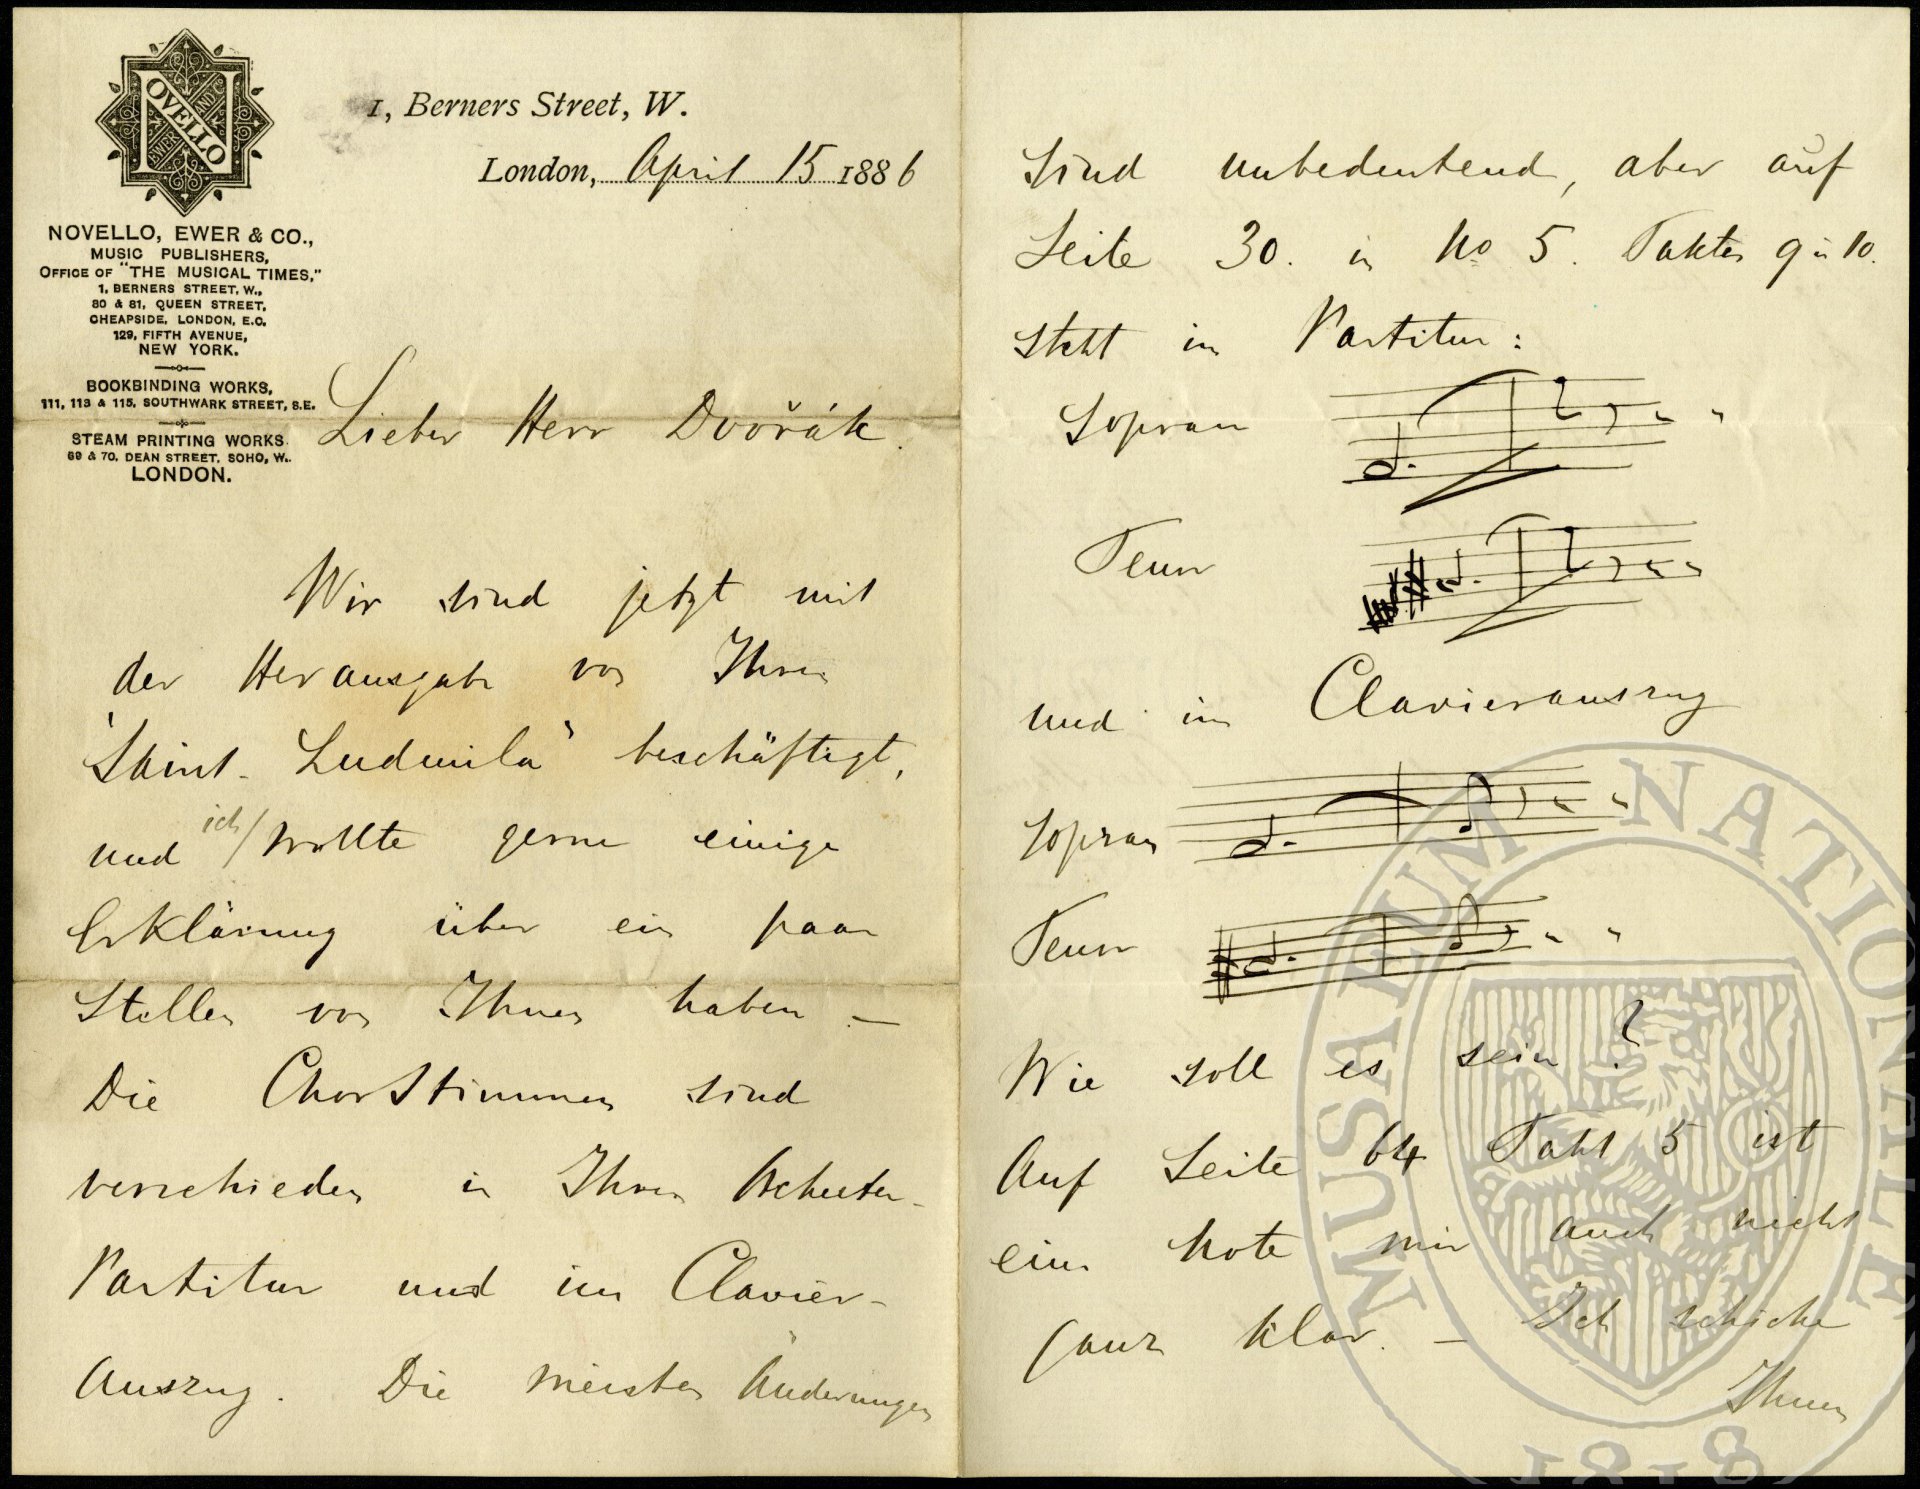 NOVELLO
AND
EWER
NOVELLO, EWER & CO.,
MUSIC PUBLISHERS,
OFFICE OF "THE MUSICAL TIMES,"
1, BERNERS STREET, W.,
80 & 81, QUEEN STREET,
CHEAPSIDE, LONDON, E.C.
129, FIFTH AVENUE,
NEW YORK.
BOOKBINDING WORKS,
111, 113 & 115, SOUTHWARK STREET, S.E.
STEAM PRINTING WORKS.
69 & 70, DEAN STREET, SOHO, W.
LONDON.
1, Berners Street, W.
London, April 15 1886
Lieber Herr Dvořák.
Wir sind jetzt mit
der Herausgabe von Ihrer
"Saint Ludmila" beschäftigt,
und ich/ wollte gerne einige
Erklärung über ein paar
Stellen von Ihnen haben —
Die Chorstimmen sind
verschieden in Ihrer Orchester-
Partitur und im Clavier-
Auszug. Die meisten Änderungen
sind unbedeutend, aber auf
Seite 30. in No 5. Takten 9 u 10.
steht in Partitur:
Sopran
Tenor
und im Clavierauszug
Sopran
Tenor
Wie soll es sein?
Auf Seite 64 Takt 5 ist
eine Note mir auch nicht
ganz klar. — Ich schicke
Ihnen
MUSAEUM NATIONALE
1818